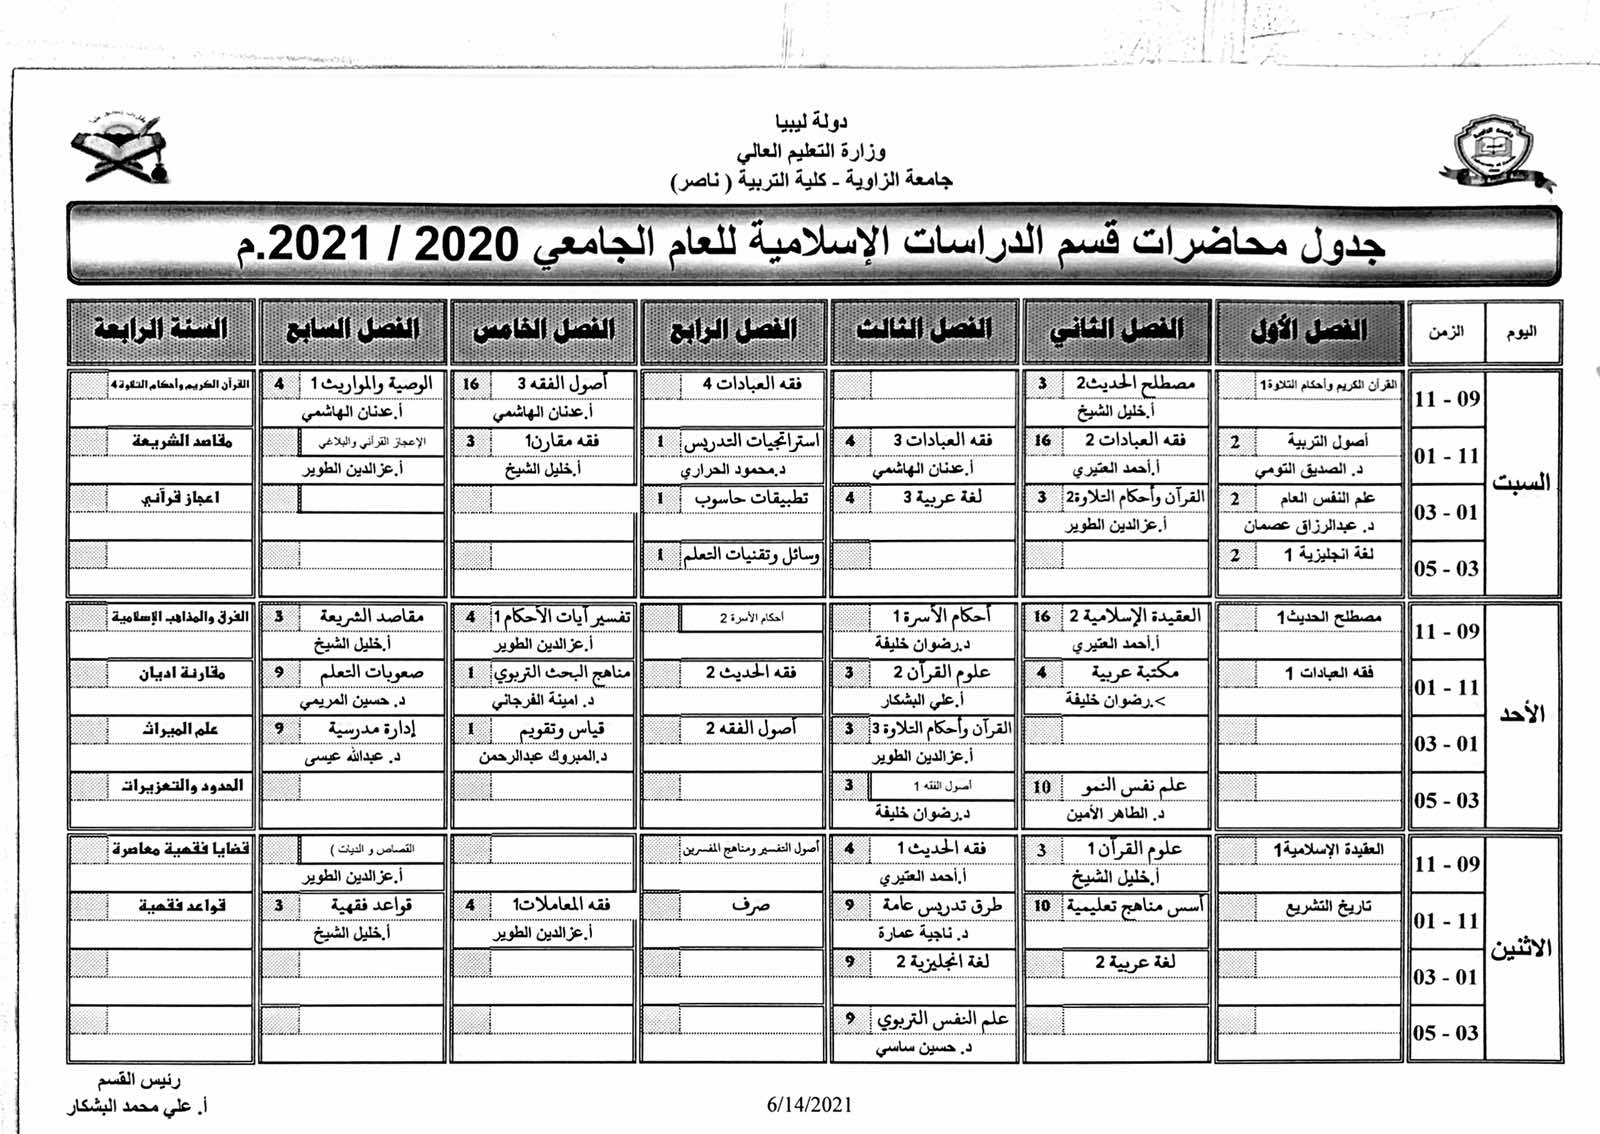 دولة ليبيا
وزارة التعليم العالي
جامعة الزاوية - كلية التربية ( ناصر)
جدول محاضرات قسم الدراسات الإسلامية للعام الجامعي 2020 / 2021.م
اليوم الزمن الفصل الأول الفصل الثاني الفصل الثالث الفصل الرابع الفصل الخامس الفصل السابع السنة الرابعة
السبت
09 - 11 القرآن الكريم وأحكام التلاوة1 مصطلح الحديث2 3 فقه العبادات 4 أصول الفقه 3 16 الوصية والمواريث 1 4 القرآن الكريم وأحكام التلاوة 4
أ.خليل الشيخ أ.عدنان الهاشمي أ.عدنان الهاشمي
11 - 01 أصول التربية 2 فقه العبادات 2 16 فقه العبادات 3 4 استراتجيات التدريس 1 فقه مقارن1 3 الإعجاز القرآني والبلاغي مقاصد الشريعة
د. الصديق التومي أ.أحمد العتيري أ.عدنان الهاشمي د.محمود الحراري أ.خليل الشيخ أ.عزالدين الطوير
01 - 03 علم النفس العام 2 القرآن وأحكام التلاوة2 3 لغة عربية 3 4 تطبيقات حاسوب 1 اعجاز قرآني
د. عبدالرزاق عصمان أ.عزالدين الطوير
03 - 05 لغة انجليزية 1 2 وسائل وتقنيات التعلم 1
الأحد
09 - 11 مصطلح الحديث1 العقيدة الإسلامية 2 16 أحكام الأسرة 1 أحكام الأسرة 2 تفسير آيات الأحكام 1 4 مقاصد الشريعة 3 الفرق والمذاهب الإسلامية
أ.أحمد العتيري د.رضوان خليفة أ.عزالدين الطوير أ.خليل الشيخ
11 - 01 فقه العبادات 1 مكتبة عربية 4 علوم القرآن 2 3 فقه الحديث 2 مناهج البحث التربوي 1 صعوبات التعلم 9 مقارنة اديان
>.رضوان خليفة أ.علي البشكار د. امينة الفرجاني د. حسين المريمي
01 - 03 القرآن وأحكام التلاوة 3 3 أصول الفقه 2 قياس وتقويم 1 إدارة مدرسية 9 علم الميراث
أ.عزالدين الطوير د.المبروك عبدالرحمن د. عبدالله عيسى
03 - 05 علم نفس النمو 10 أصول الفقه 1 3 الحدود والتعزيرات
د. الطاهر الأمين د.رضوان خليفة
الاثنين
09 - 11 العقيدة الإسلامية1 علوم القرآن 1 3 فقه الحديث 1 4 أصول التفسير ومناهج المفسرين القصاص و الديات ) قضايا فقهية معاصرة
أ.خليل الشيخ أ.أحمد العتيري أ.عزالدين الطوير
11 - 01 تاريخ التشريع أسس مناهج تعليمية 10 طرق تدريس عامة 9 صرف فقه المعاملات1 4 قواعد فقهية 3 قواعد فقهية
د. ناجية عمارة أ.عزالدين الطوير أ.خليل الشيخ
01 - 03 لغة عربية 2 لغة انجليزية 2 9
03 - 05 علم النفس التربوي 9
د. حسين ساسي
رئيس القسم
أ. علي محمد البشكار
6/14/2021